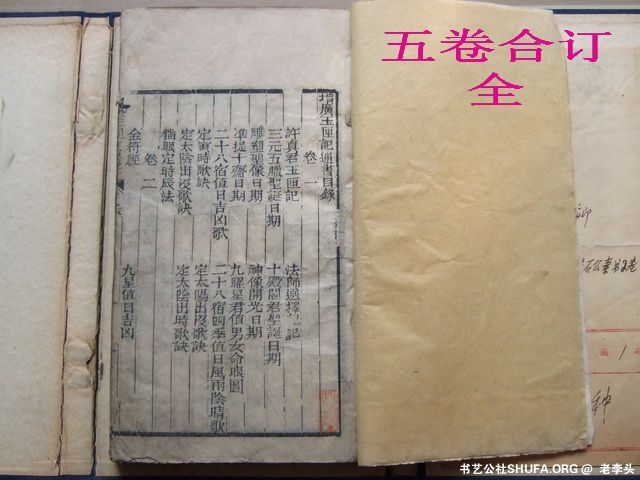 五卷合订
全
增廣玉匣記通書目錄
卷一
許真君玉匣記 法師選擇記
三元五臘聖誕日期 十殿閻君聖誕日期
雕塑聖像日期 神像開光日期
準提十齋日期 九曜星君值男女命限圖
二十八宿值日吉凶歌 二十八宿四季值日風雨陰晴歌
定寅時歌訣 定太陽出沒歌訣
定太陰出沒歌訣 定太陰出時歌訣
猫眼定時辰法
卷二
金符經 九星值日吉凶
书艺公社SHUFA.ORG @ 老李头